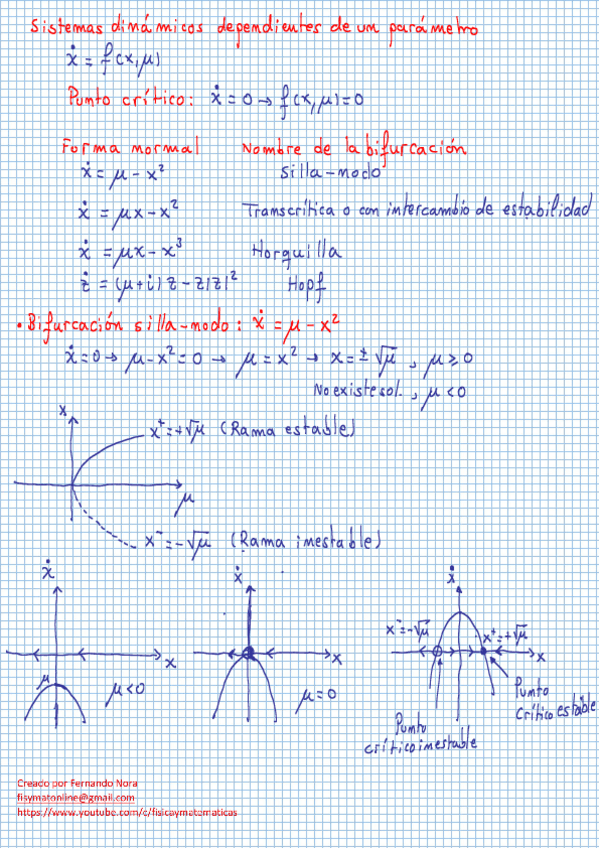 Sistemas dinámicos dependientes de un parámetro
ẋ = f(x,μ)
Punto crítico: ẋ = 0 → f(x,μ) = 0
Forma normal Nombre de la bifurcación
ẋ = μ - x² Silla-nodo
ẋ = μx - x² Transcrítica o con intercambio de estabilidad
ẋ = μx - x³ Horquilla
ż = (μ+i)z - z|z|² Hopf
• Bifurcación silla-nodo: ẋ = μ - x²
ẋ = 0 → μ - x² = 0 → μ = x² → x = ±√μ , μ ≥ 0
No existe sol. , μ < 0
x
x⁺ = +√μ (Rama estable)
μ
x⁻ = -√μ (Rama inestable)
ẋ ẋ ẋ
x⁻ = -√μ x⁺ = +√μ
x x x
μ μ < 0 μ = 0
Punto
crítico estable
Punto
crítico inestable
Creado por Fernando Nora
fisymatonline@gmail.com
https://www.youtube.com/c/fisicaymatematicas